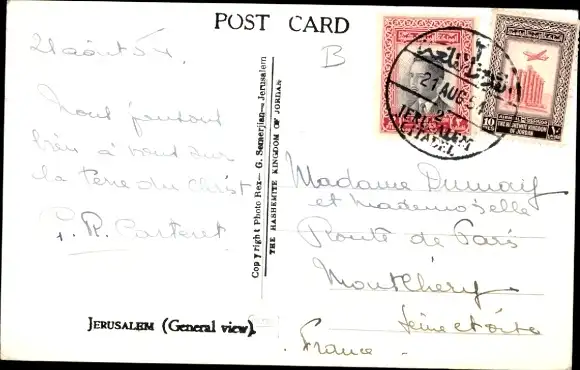 POST CARD
21 août 54.
B
bien à vous sur
la terre du Christ
G. R. Carteret
Copyright Photo Rex— G. Semerjian— Jerusalem
THE HASHEMITE KINGDOM OF JORDAN
JERUSALEM (General view).
21 AUG 54
JERUSALEM
10
FILS
THE HASHEMITE KINGDOM
OF JORDAN
Madame
et mademoiselle
Route de Paris
Montlhéry
Seine et Oise
France